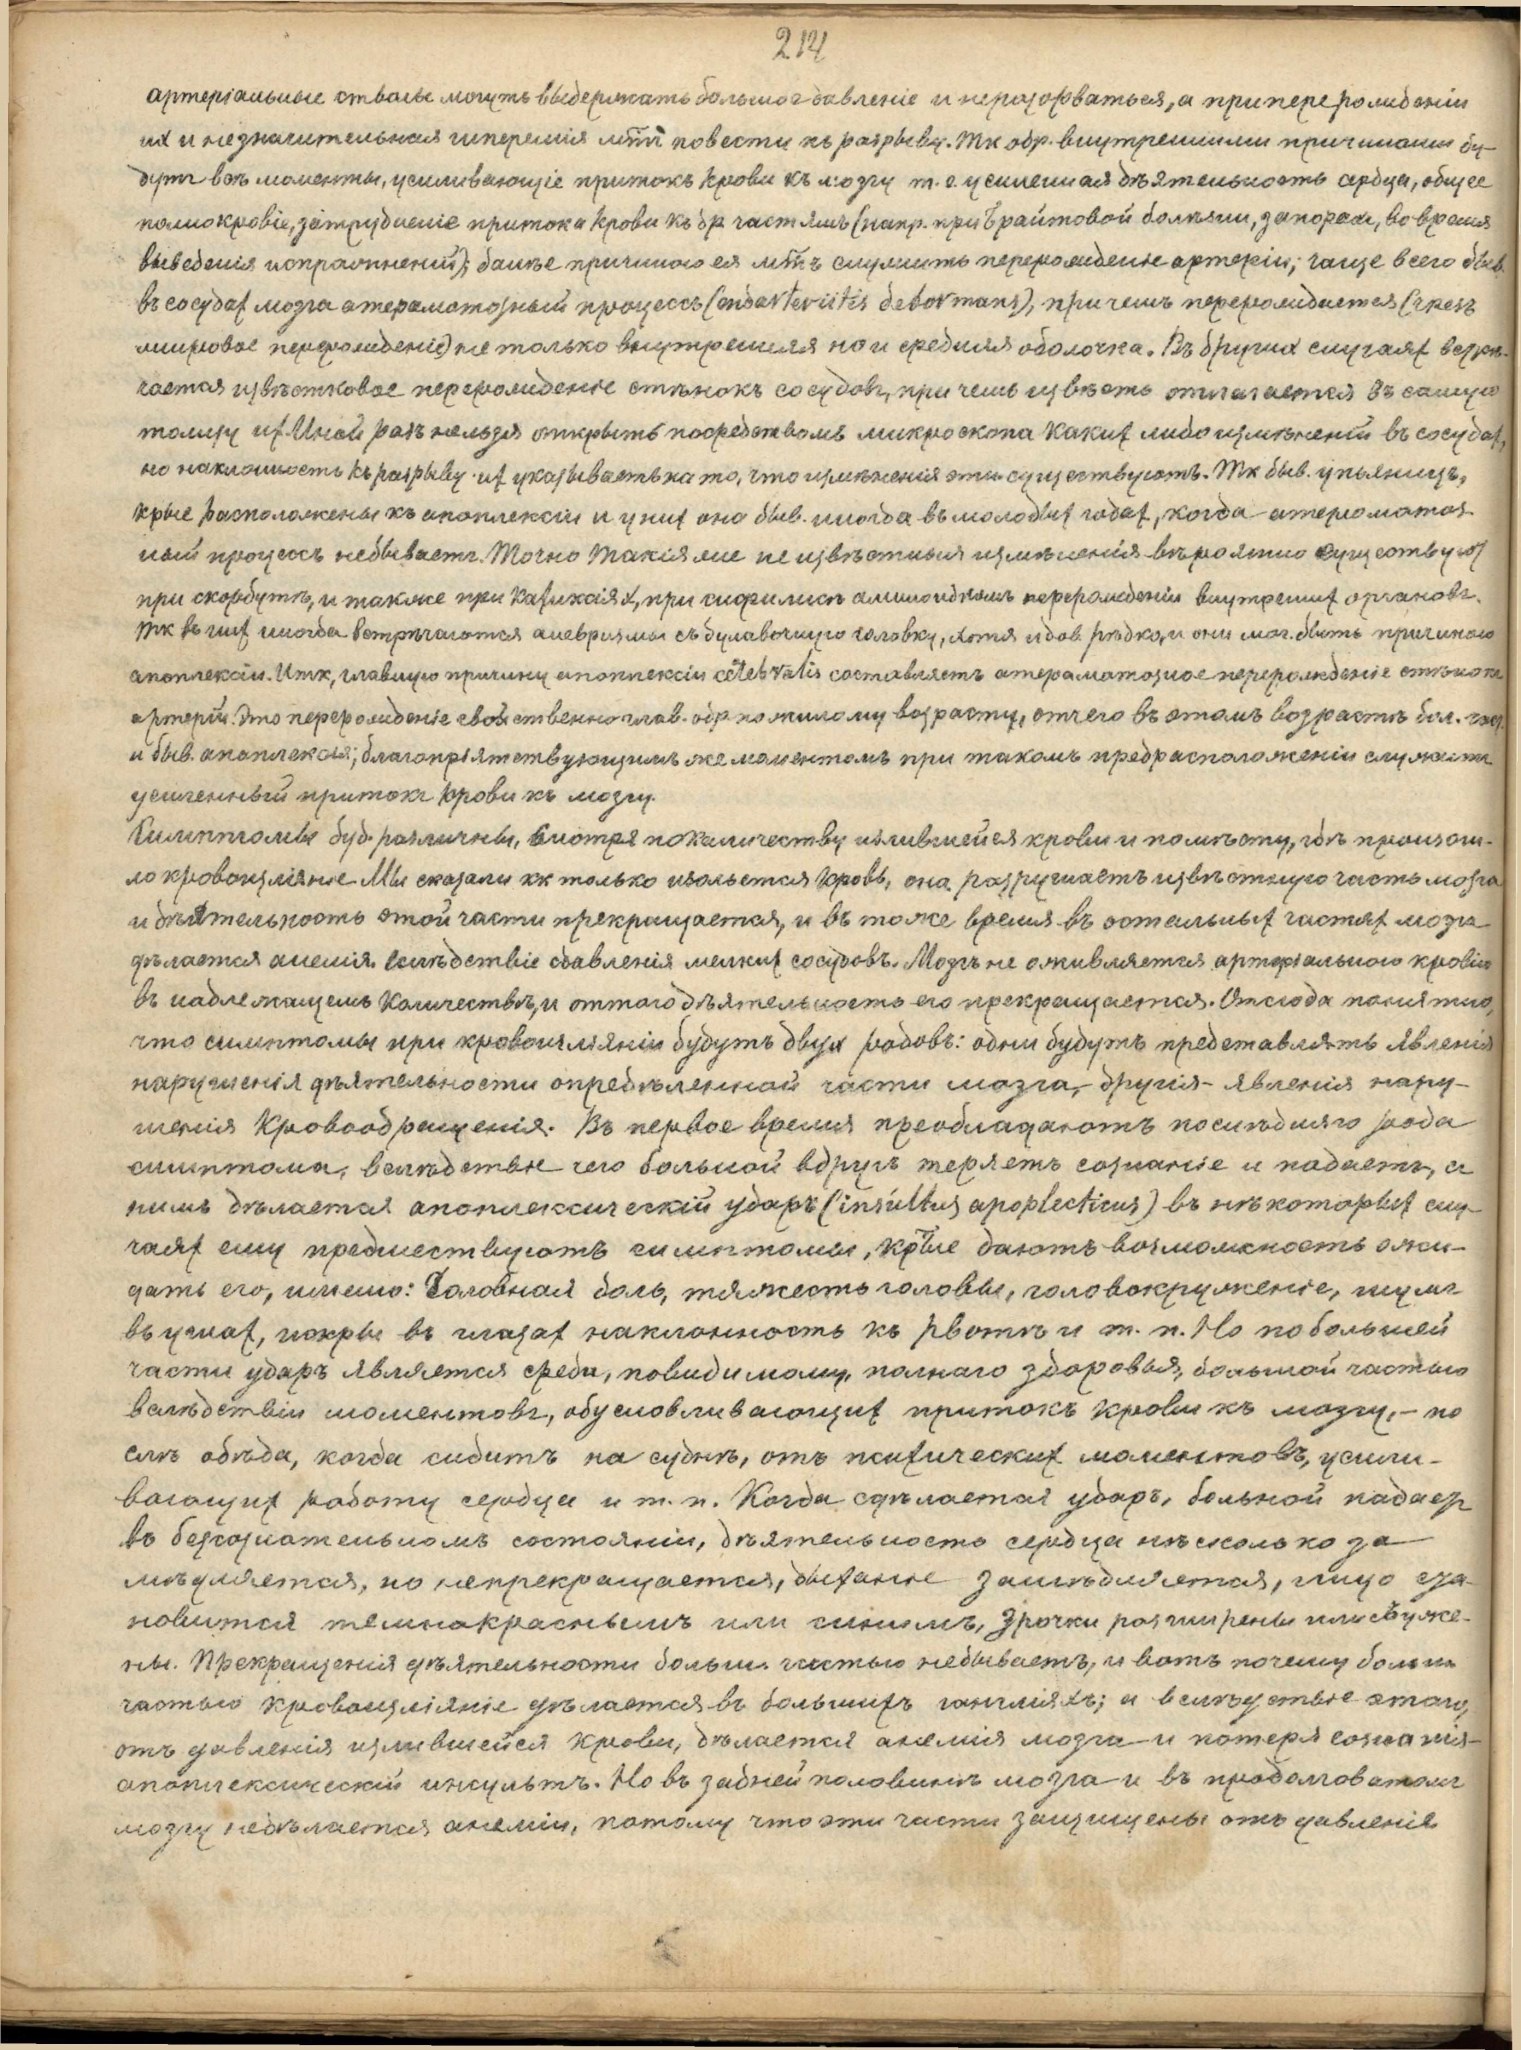 214
артеріальные стволы могутъ выдержать большое давленіе и неразорваться, а при перерожденіи
их и незначительная гиперемія мтъ повести къ разрыву. Тк обр. внутренними причинами бу-
дутъ всѣ моменты, усиливающіе притокъ крови къ мозгу т. е. усиленная дѣятельность сердца, общее
полнокровіе, затрудненіе притока крови къ др частямъ (напр. при Брайтовой болѣзни, запорахъ, во время
выведенія испражненій); далѣе причиною ея мтъ служить перерожденіе артеріи; чаще всего быв.
въ сосудах мозга атероматозный процессъ (endarteriitis deformans), при чемъ перерождается (чрезъ
жировое перерожденіе) не только внутренняя но и средняя оболочка. Въ других случаях встрѣ-
чается известковое перерожденіе стѣнокъ сосудовъ, при чемъ известь отлагается въ самую
толщу их. Иной разъ нельзя открыть посредствомъ микроскопа каких либо измѣненій въ сосудах,
но наклонность къ разрыву их указываетъ на то, что измѣненія эти существуютъ. Тк быв. у пьяницъ,
крые расположены къ апоплексіи и у них она быв. иногда въ молодых годах, когда атероматоз
ный процессъ небываетъ. Точно такія же не извѣстныя измѣненія вѣроятно существуют
при скорбутѣ, и также при кахихіях, при сифилисѣ амилоидномъ перерожденіи внутрених органовъ.
Тк въ них иногда встрѣчаются аневризмы съ булавочную головку, хотя и дов. рѣдко, и они мог. быть причиною
апоплексіи. Итк, главную причину апоплексіи cerebralis составляетъ атероматозное перерожденіе стѣнокъ
артерій. Это перерожденіе свойственно глав. обр пожилому возрасту, отчего въ этомъ возрастѣ бол. част.
и быв. апоплексія; благопріятствующимъ же моментомъ при такомъ предрасположеніи служитъ
усиленный притокъ крови къ мозгу.
Симптомы буд. различны, смотря по каличеству излившейся крови и по мѣсту, гдѣ произош-
ло кровоизліяніе. Мы сказали кк только изольется кровь, она разрушаетъ извѣстную часть мозга
и дѣятельность этой части прекращается, и въ тоже время въ остальных частях мозга
дѣлается анемія вслѣдствіе сдавленія мелких сосудовъ. Мозгъ не оживляется артеріальною кровію
въ надлежащемъ количествѣ, и оттого дѣятельность его прекращается. Отсюда понятно,
что симптомы при кровоизліяніи будутъ двух родовъ: одни будутъ представлять явленія
нарушенія дѣятельности опредѣленной части мозга, другія - явленія нару-
шенія кровообращенія. Въ первое время преобладаютъ послѣдняго рода
симптома, вслѣдствіе чего больной вдругъ теряетъ сознаніе и падаетъ, съ
нимъ дѣлается апоплексическій ударъ (insultus apoplecticus) въ нѣкоторых слу-
чаях ему предшествуютъ симптомы, крые даютъ возможность ожи-
дать его, имено: Головная боль, тяжесть головы, головокруженіе, шумъ
въ ушах, искры въ глазах наклонность къ рвотѣ и т. п. Но по большей
части ударъ является среди, повидимому, полнаго здоровья, большой частью
вслѣдствіи моментовъ, обусловливающих притокъ крови къ мозгу, - по
слѣ обѣда, когда сидитъ на суднѣ, отъ психических моментовъ, усили-
вающих работу сердца и т. п. Когда сдѣлается ударъ, больной падает
въ безсознательномъ состояніи, дѣятельность сердца нѣсколько за
мѣдляется, но непрекращается, дыханіе замѣдляется, лицо ста-
новится темнакраснымъ или синимъ, зрачки расширены или съуже-
ны. Прекращенія дѣятельности больш. частью небываетъ, и вотъ почему больш.
частью кровоизліяніе дѣлается въ большихъ гангліяхъ; и вслѣдствіе этого,
отъ давленія излившейся крови, дѣлается анемія мозга и потеря сознанія-
апоплексическій инсультъ. Но въ задней половинѣ мозга и въ продолговатомъ
мозгу недѣлается анеміи, потому что эти части защищены отъ давленія